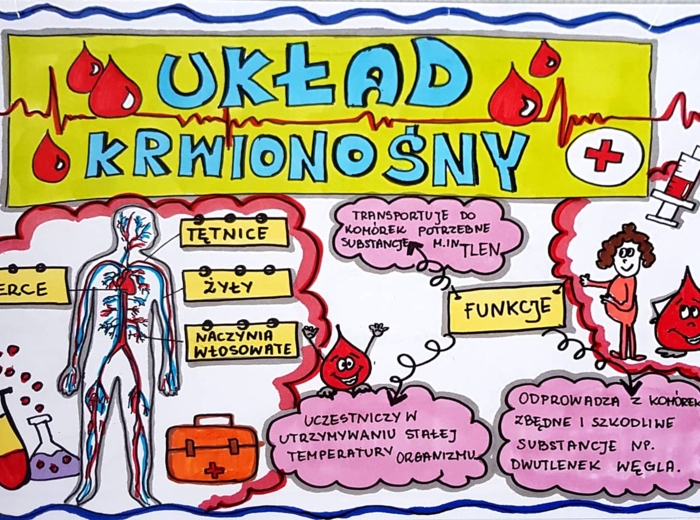 UKŁAD
KRWIONOŚNY
TĘTNICE
ERCE
ŻYŁY
NACZYNIA
WŁOSOWATE
TRANSPORTUJE DO
KOMÓREK POTRZEBNE
SUBSTANCJE M.IN TLEN
FUNKCJE
UCZESTNICZY W
UTRZYMYWANIU STAŁEJ
TEMPERATURY ORGANIZMU
ODPROWADZA Z KOMÓREK
ZBĘDNE I SZKODLIWE
SUBSTANCJE NP.
DWUTLENEK WĘGLA.